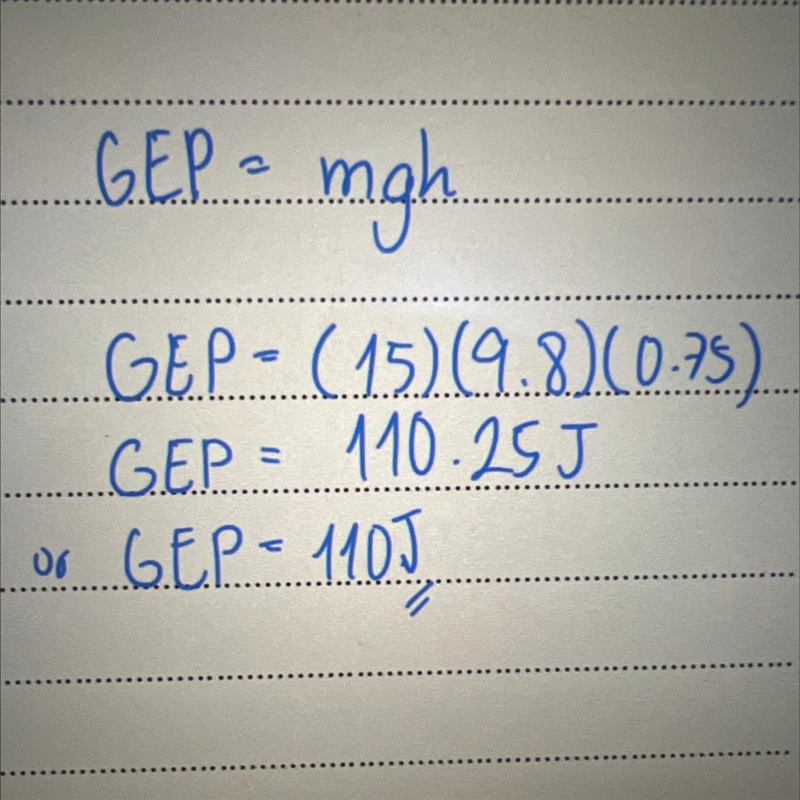 GEP = mgh
GEP = (15)(9.8)(0.75)
GEP = 110.25 J
or GEP = 110J